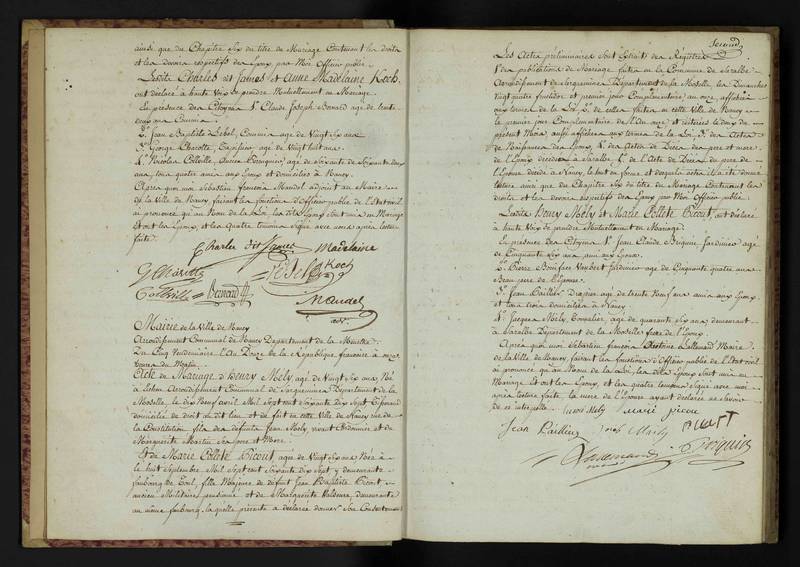 ainsi que du Chapitre Six du titre du Mariage Contenant les droits
et les devoirs respectifs des Epoux, par Moi Officier public.
Lesdits Charles dit James et Anne Madelaine Koch,
ont déclaré à haute Voix Se prendre Mutuellement en Mariage.
En présence des Citoyens 1° Claude Joseph Bernard agé de trente
deux ans Commis.
2° Jean Baptiste Lebel, Commis agé de Vingt Six ans
3° George Charotte, agé de Vingt huit ans.
4° Nicolas Colleville, ancien Perruquier, agé de Soixante
ans, tous quatre amis aux Epoux et domiciliés à Nancy.
Après quoi moi Sebastien francois Mandel adjoint au Maire
de la Ville de Nancy, faisant les fonctions d'Officier public de l'Etat civil
ai prononcé qu'au Nom de la Loi, les dits Epoux Sont unis en Mariage
et ont les Epoux, et les quatre temoins signé avec nous après lecture
faite.
Charle dit James Madelaine
Koch
G Charotte
Colleville Bernard
Mandel
adj.
Mairie de la Ville de Nancy
Arrondissement Communal de Nancy Departement de la Meurthe.
Du Cinq Vendemiaire l'An Douze de la République française à onze
heures du Matin.
Acte de Mariage d'Henry Mély, agé de Vingt Six ans, Né
à Arrondissement Communal de Sarguemines Departement de la
Moselle, le dix Neuf avril Mil Sept cent Soixante dix Sept
domicilié de droit au dit lieu et de fait en cette Ville de Nancy rue de
la Constitution, fils des défunts Jean Mely vivant et de
Marguerite Martin Ses pere et Mere.
Et de Marie Collete Picout agée de Vingt Six ans Née à
le huit Septembre Mil Sept cent Soixante dix Sept, demeurante
faubourg de fille Majeure de défunt Jean Baptiste Picout
ancien Militaire pensionné et de Marguerite demeurante
au même faubourg, laquelle présente a déclaré donner Son Consentement
Second
Les Actes préliminaires Sont Extraits des Registres
1° des publications de Mariage faites en la Commune de Saralbe
Arrondissement de Sarguemines, Département de la Moselle, les Dimanches
vingt quatre fructidor et premier jour Complementaire an onze, affichées
aux termes de la Loi. 2° de celles faites en cette Ville de Nancy
le premier jour Complementaire de l'An onze et le deux du
présent Mois aussi affichées aux termes de la Loi. 3° des Actes
de Naissances des Epoux. 4° des Actes de Décès des pere et mere
de l'Epoux décédés à Saralbe 5° de l'Acte de Décès du pere de
l'Epouse décédé à Nancy, le tout en forme et desquels actes il a été donné
lecture ainsi que du Chapitre Six du titre du Mariage Contenant les
droits et les devoirs respectifs des Epoux, par Moi Officier public.
Lesdits Henry Mély et Marie Collete Picout, ont déclaré
à haute Voix Se prendre Mutuellement en Mariage.
En presence des Citoyens 1° Jean Claude Jardinier agé
de Cinquante Six ans, ami aux Epoux.
2° Pierre Boniface Jardinier agé de Cinquante quatre ans
Beau pere de l'Epouse.
3° Jean Paillier, Drapier agé de trente Neuf ans amis aux Epoux
et tous trois domiciliés à Nancy
4° Jacques Mély, Tonnelier, agé de quarante Six ans demeurant
à Saralbe Département de la Moselle frere de l'Epoux.
Après quoi moi Lallemand Maire
de la Ville de Nancy, faisant les fonctions d'Officier public de l'Etat civil
ai prononcé qu'au Nom de la Loi, les dits Epoux Sont unis en
Mariage et ont les Epoux, et les quatre temoins Signé avec moi
après lecture faite, la mere de l'Epouse ayant déclaré ne Savoir
de ce interpellée. henri Mely marie picou
Jean Paillier Mely
Lallemand